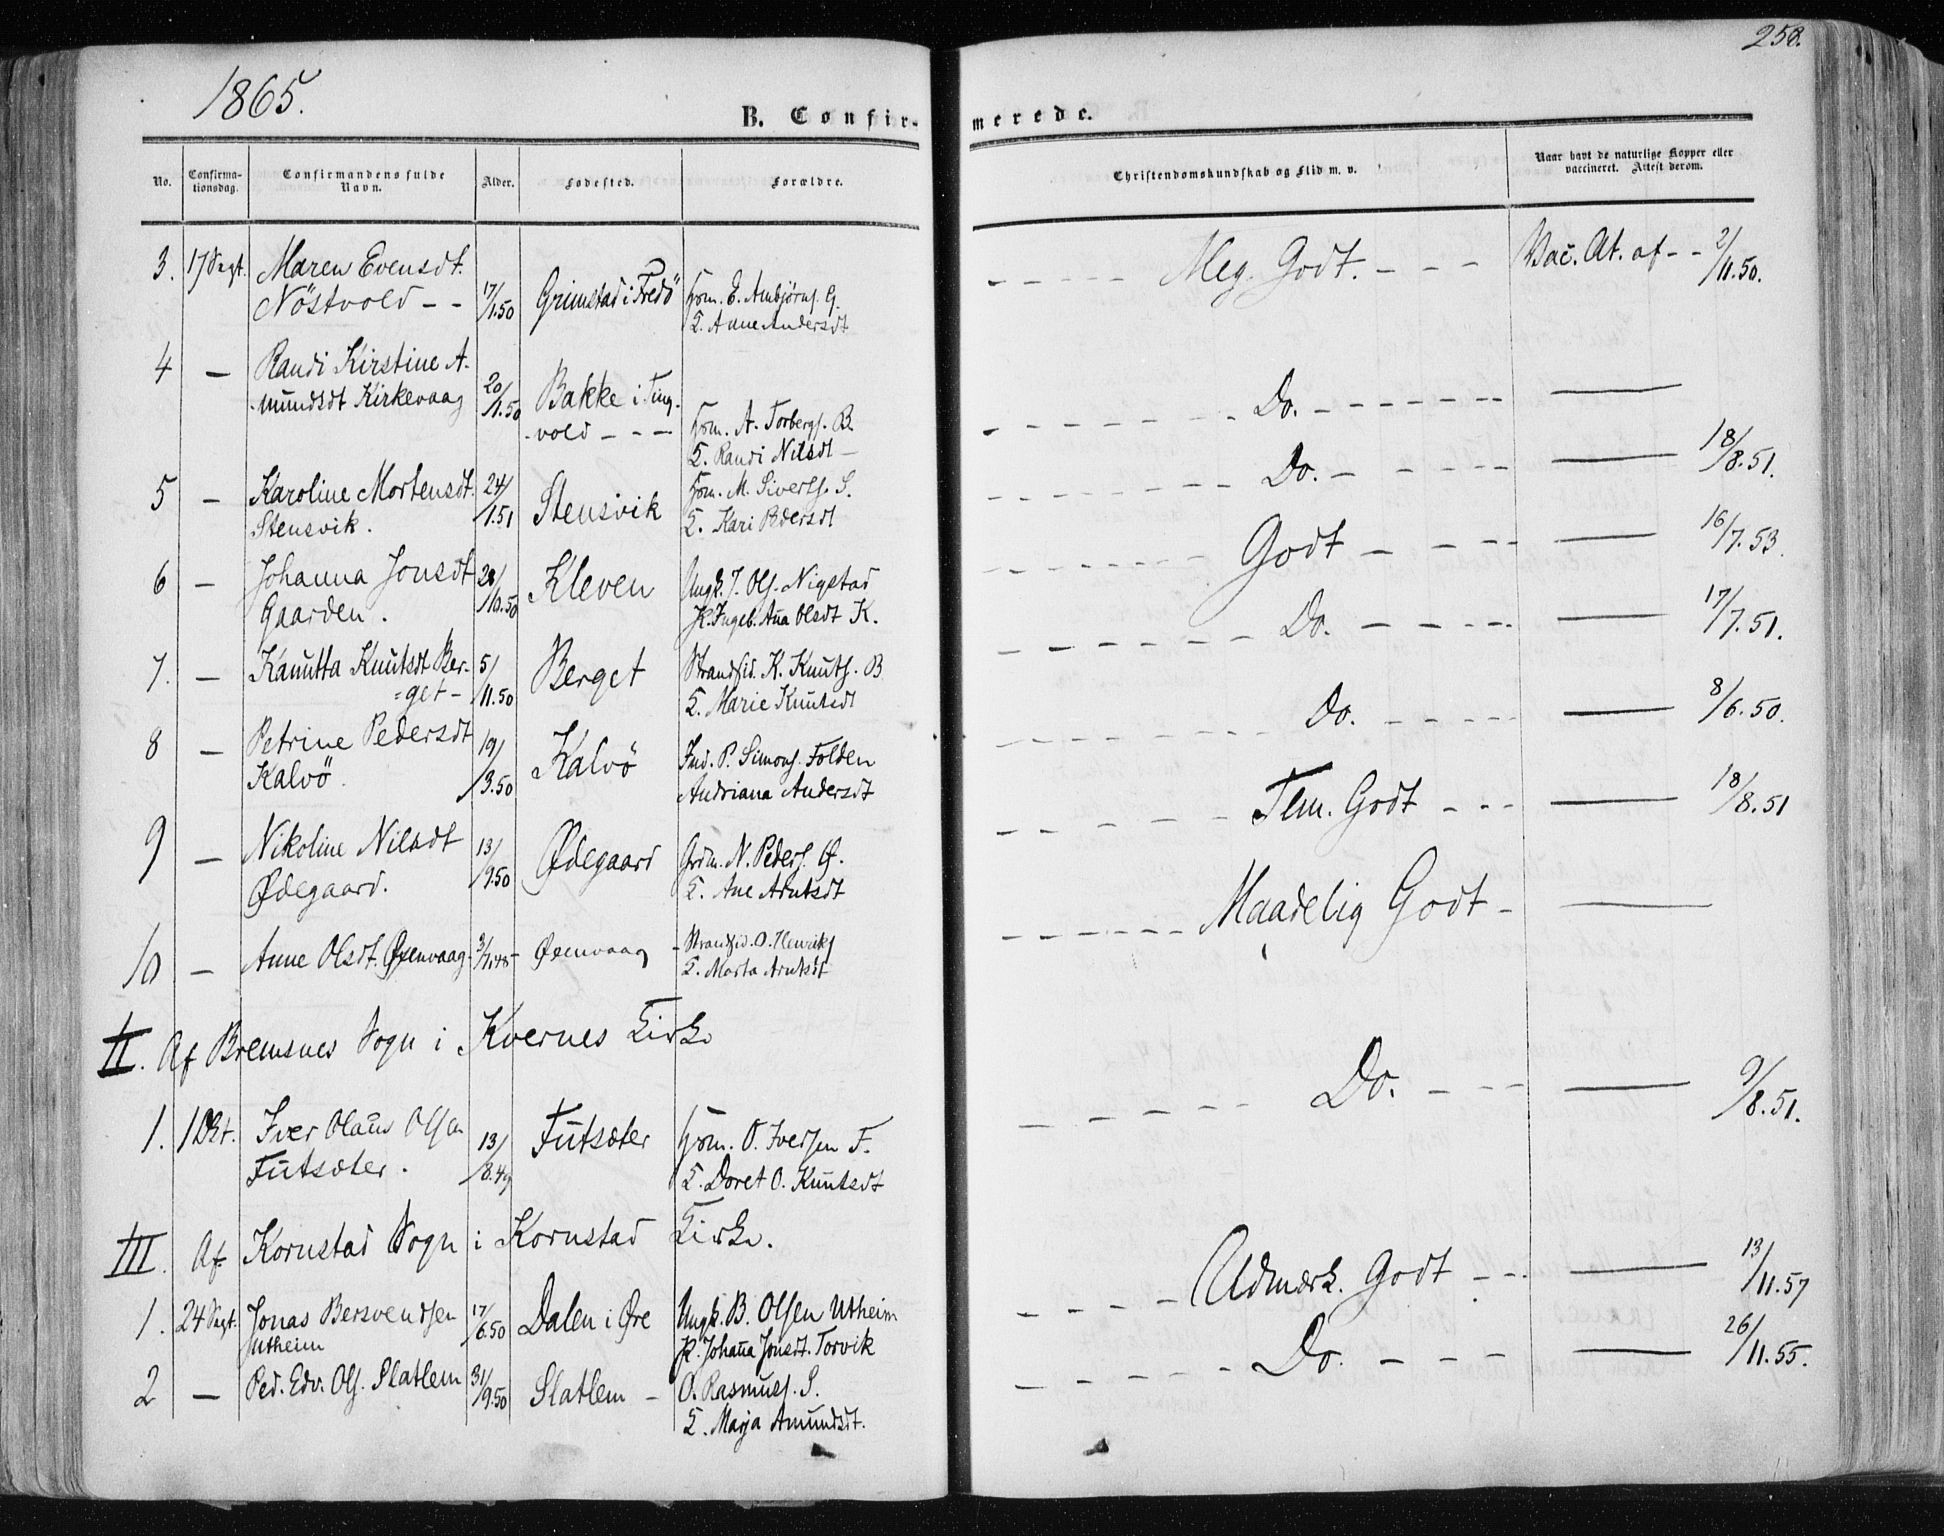 1865.
258.
B. Confirmerede.
No.
Confirmationsdag.
Confirmandens fulde Navn.
Alder.
Fødested.
Forældre.
Christendomskundskab og Flid m. v.
Naar havt de naturlige Kopper eller vaccineret. Attest derom.
3. 17 Sept. Maren Evensdt. 17/1.50 Grimstad i Fredö Hvm. E. Ambjørns. G. - - - - Meg. Godt. - - - Vac. At. af - - 2/11.50.
Nöstvold - - Q. Anne Andersdt
4 — Randi Kirstine A- 20/1.50 Bakke i Ting- Hvm. A. Torbergs. B. Do. —
mundsdt Kirkevaag vold - - - Q. Randi Nilsdt —
5 — Karoline Mortensdt. 24/1.51 Stensvik Hvm. M. Siverts. S. Do. — 18/8.51.
Stensvik. Q. Kari Pedersdt
6 — Johanna Jonsdt 28/10.50 Kleven Ungk. J. Ols. Nigstad Godt — 16/7.53.
Gaarden. P. Ingeb. Ana Olsdt K.
7. — Kanutta Knutsdt Ber- 5/11.50 Berget Strandsid. K. Knuts. B Do. — 17/7.51.
=get - Q. Marie Knutsdt
8 — Petrine Pedersdt 19/3.50 Kalvö Ind. P. Simons. Folden Do. — 8/6.50.
Kalvö. Andriana Andersdt
9 — Nikoline Nilsdt 13/9.50 Ødegaard Grdm. N. Peders. Ø. Tem. Godt - - - — 18/8.51
Ødegaard. Q. Ane Arntsdt
10 — Anne Olsdt. Øsenvaag Øsenvaag - Strandsid. O. Henriks Maadelig Godt - —
Q. Marta Arntsdt
II. Af Bremsnes Sogn i Kvernes Kirke
1. 1 Okt. Iver Olaus Olsen 13/8.49 Futsæter Hvm. O. Iversen F. Do. - - - — 9/8.51.
Futsæter. Q. Doret O. Knutsdt
III. Af Kornstad Sogn i Kornstad Kirke.
1. 24 Sept. Jonas Bersvendsen 17/6.50 Dalen i Øre Ungk. B. Olsen Utheim Udmærk. Godt - - - — 13/11.57
Utheim P. Johana Jonsdt. Torvik
2 — Ped. Edv. Ols. Slatlem 31/9.50 Slatlem - O. Rasmuss. S. Do. - - - — 26/11.55.
Q. Marja Amundsdt.